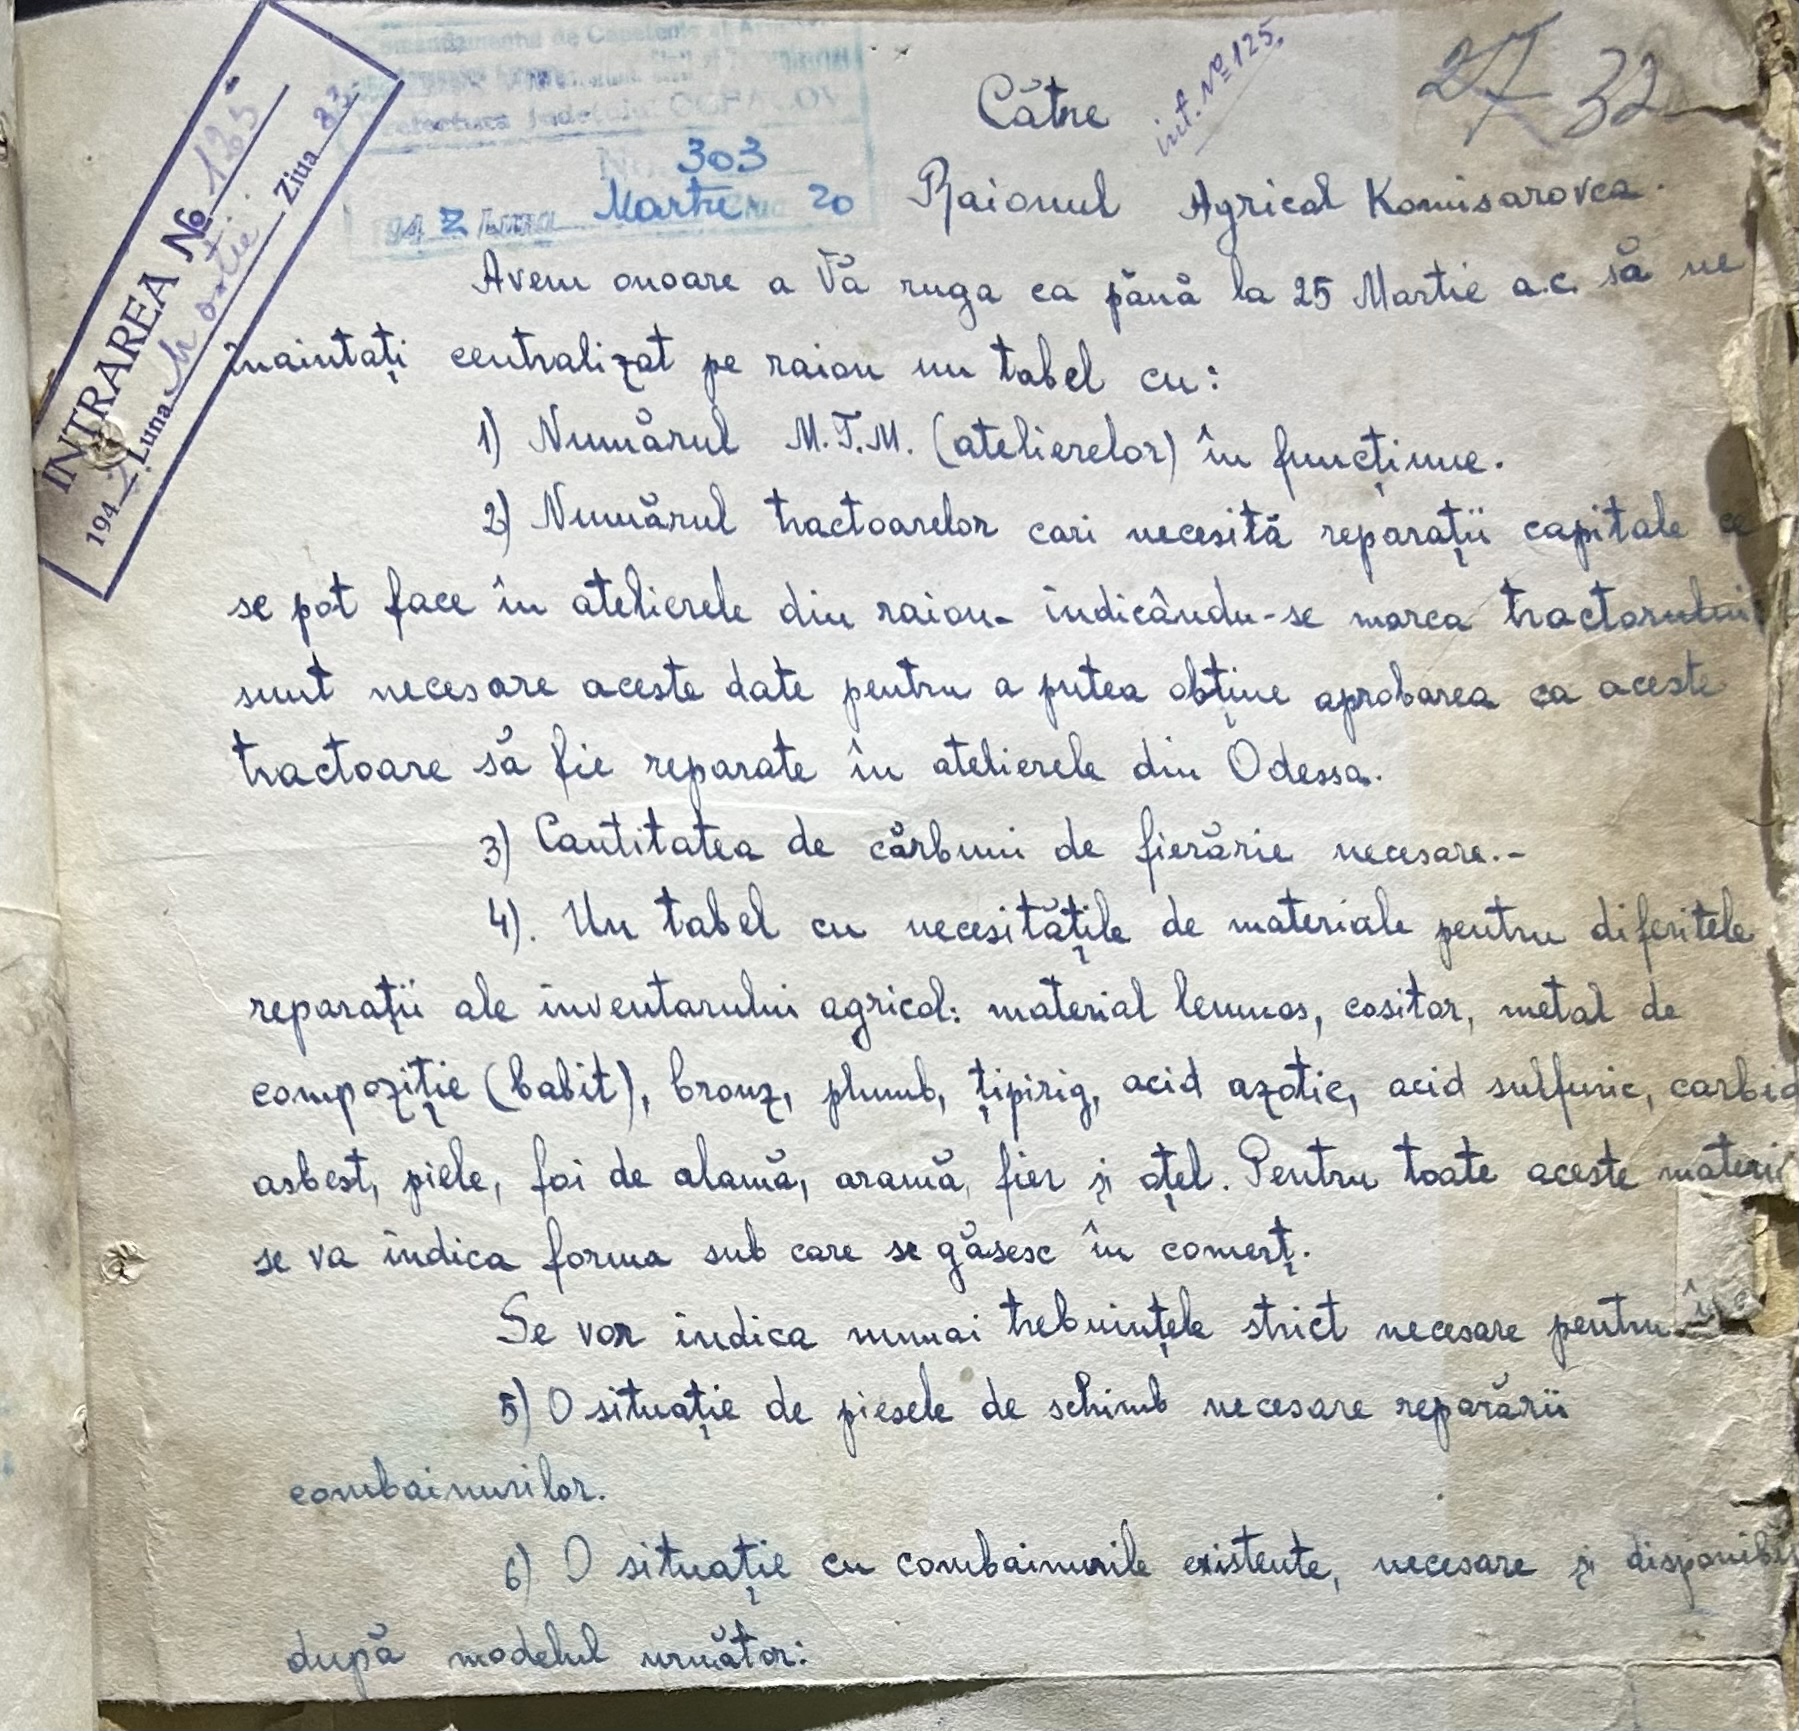 INTRAREA № 125
194 2 Luna Martie Ziua 23
Prefectura Județului
No. 303
194 2 Luna Martie Ziua 20
int. № 125.
27 32
Către
Raionul Agricol Komisarovca.
Avem onoare a Vă ruga ca până la 25 Martie a.c. să ne
înaintați centralizat pe raion un tabel cu:
1) Numărul M.T.M. (atelierelor) în funcțiune.
2) Numărul tractoarelor cari necesită reparații capitale ce
se pot face în atelierele din raion- indicându-se marca tractorului
sunt necesare aceste date pentru a putea obține aprobarea ca aceste
tractoare să fie reparate în atelierele din Odessa.
3) Cantitatea de cărbuni de fierărie necesare.-
4). Un tabel cu necesitățile de materiale pentru diferitele
reparații ale inventarului agricol: material lemnos, cositor, metal de
compoziție (babit), bronz, plumb, țipirig, acid azotic, acid sulfuric, carbid
asbest, piele, foi de alamă, aramă, fier și oțel. Pentru toate aceste materi
se va indica forma sub care se găsesc în comerț.
Se vor indica numai trebuințele strict necesare pentru
5) O situație de piesele de schimb necesare reparării
combainurilor.
6) O situație cu combainurile existente, necesare și disponibi
după modelul următor: